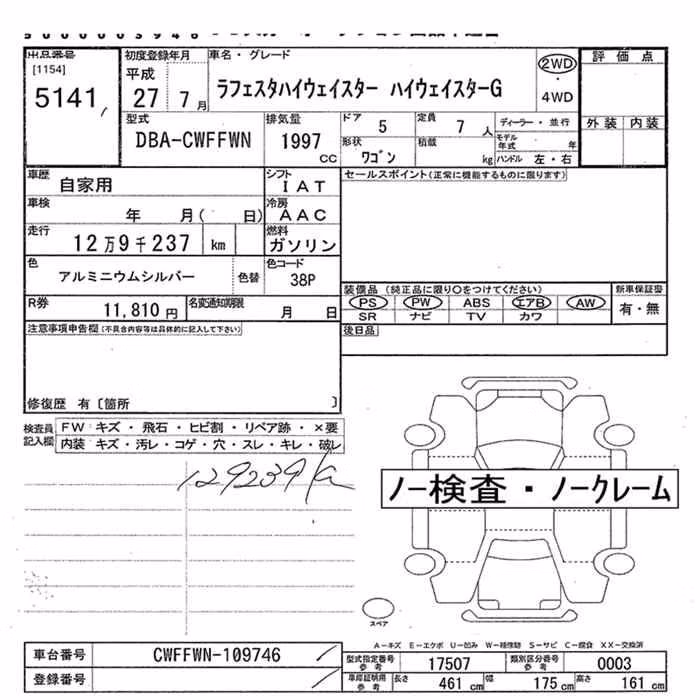 出品番号
[1154]
5141
初度登録年月
平成
27 7月
車名・グレード
ラフェスタハイウェイスター ハイウェイスターG
2WD
4WD
評価点
外装 内装
型式
DBA-CWFFWN
排気量
1997
CC
ドア 5
定員 7人
形状 ワゴン
積載 kg
ディーラー・並行
モデル年式 年
ハンドル 左・右
車歴 自家用
シフト IAT
車検 年 月( 日)
冷房 AAC
走行 12万9千237 km
燃料 ガソリン
色 アルミニウムシルバー
色替
色コード 38P
R券 11,810円
名変通知期限 月 日
セールスポイント(正常に機能するものに限ります)
装備品 (純正品に限り○をつけてください)
新車保証書
PS PW ABS エアB AW
有・無
SR ナビ TV カワ
後日品
注意事項申告欄(不具合内容等は具体的に記入して下さい)
修復歴 有〔箇所 〕
検査員記入欄
FW キズ・飛石・ヒビ割・リペア跡・×要
内装 キズ・汚レ・コゲ・穴・スレ・キレ・破レ
129239
ノー検査・ノークレーム
スペア
A-キズ E-エクボ U-凹み W-補修跡 S-サビ C-腐食 XX-交換済
車台番号 CWFFWN-109746
登録番号
型式指定番号 参考 17507
類別区分番号 参考 0003
車庫証明用 参考 長さ 461 cm 幅 175 cm 高さ 161 cm